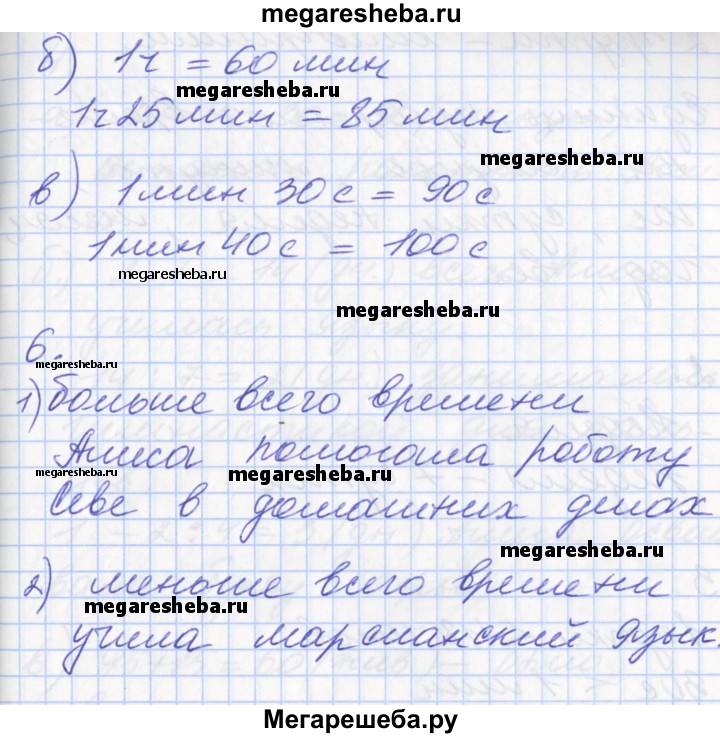 megaresheba.ru
б) 1ч = 60 мин
megaresheba.ru
1ч 25 мин = 85 мин
megaresheba.ru
в) 1 мин 30 с = 90 с
1 мин 40 с = 100 с
megaresheba.ru
megaresheba.ru
6.
megaresheba.ru
1) больше всего времени
Алиса помогала роботу
megaresheba.ru
megaresheba.ru
Севе в домашних делах
megaresheba.ru
2) меньше всего времени
megaresheba.ru
учила марсианский язык.
Мегарешеба.ру